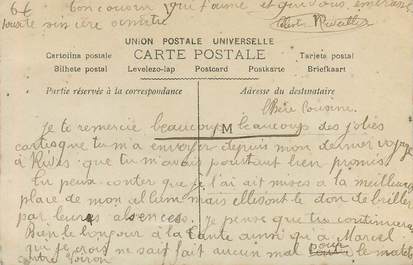 Et ton cousin qui t'aime et qui vous embrasse
toute sincère amitié
UNION POSTALE UNIVERSELLE
CARTE POSTALE
Cartolina postale Tarjeta postal
Bilhete postal Levelezo-lap Postcard Postkarte Briefkaart
Partie réservée à la correspondance Adresse du destinataire
Chère Cousine
Je te remercie beaucoup M beaucoup des jolies
cartes que tu m'a envoyer depuis mon dernier voyage
à Rives que tu m'avais pourtant bien promis
tu peux conter que je l'ai ait mises a la meilleure
place de mon album mais elles ont le don de briller
par leures absences. Je pense que tu continuera
Bien le bonjour à la tante ainsi qu'a Marcel
qui je crois ne sait fait aucun mal pour le matelot
entre Voiron